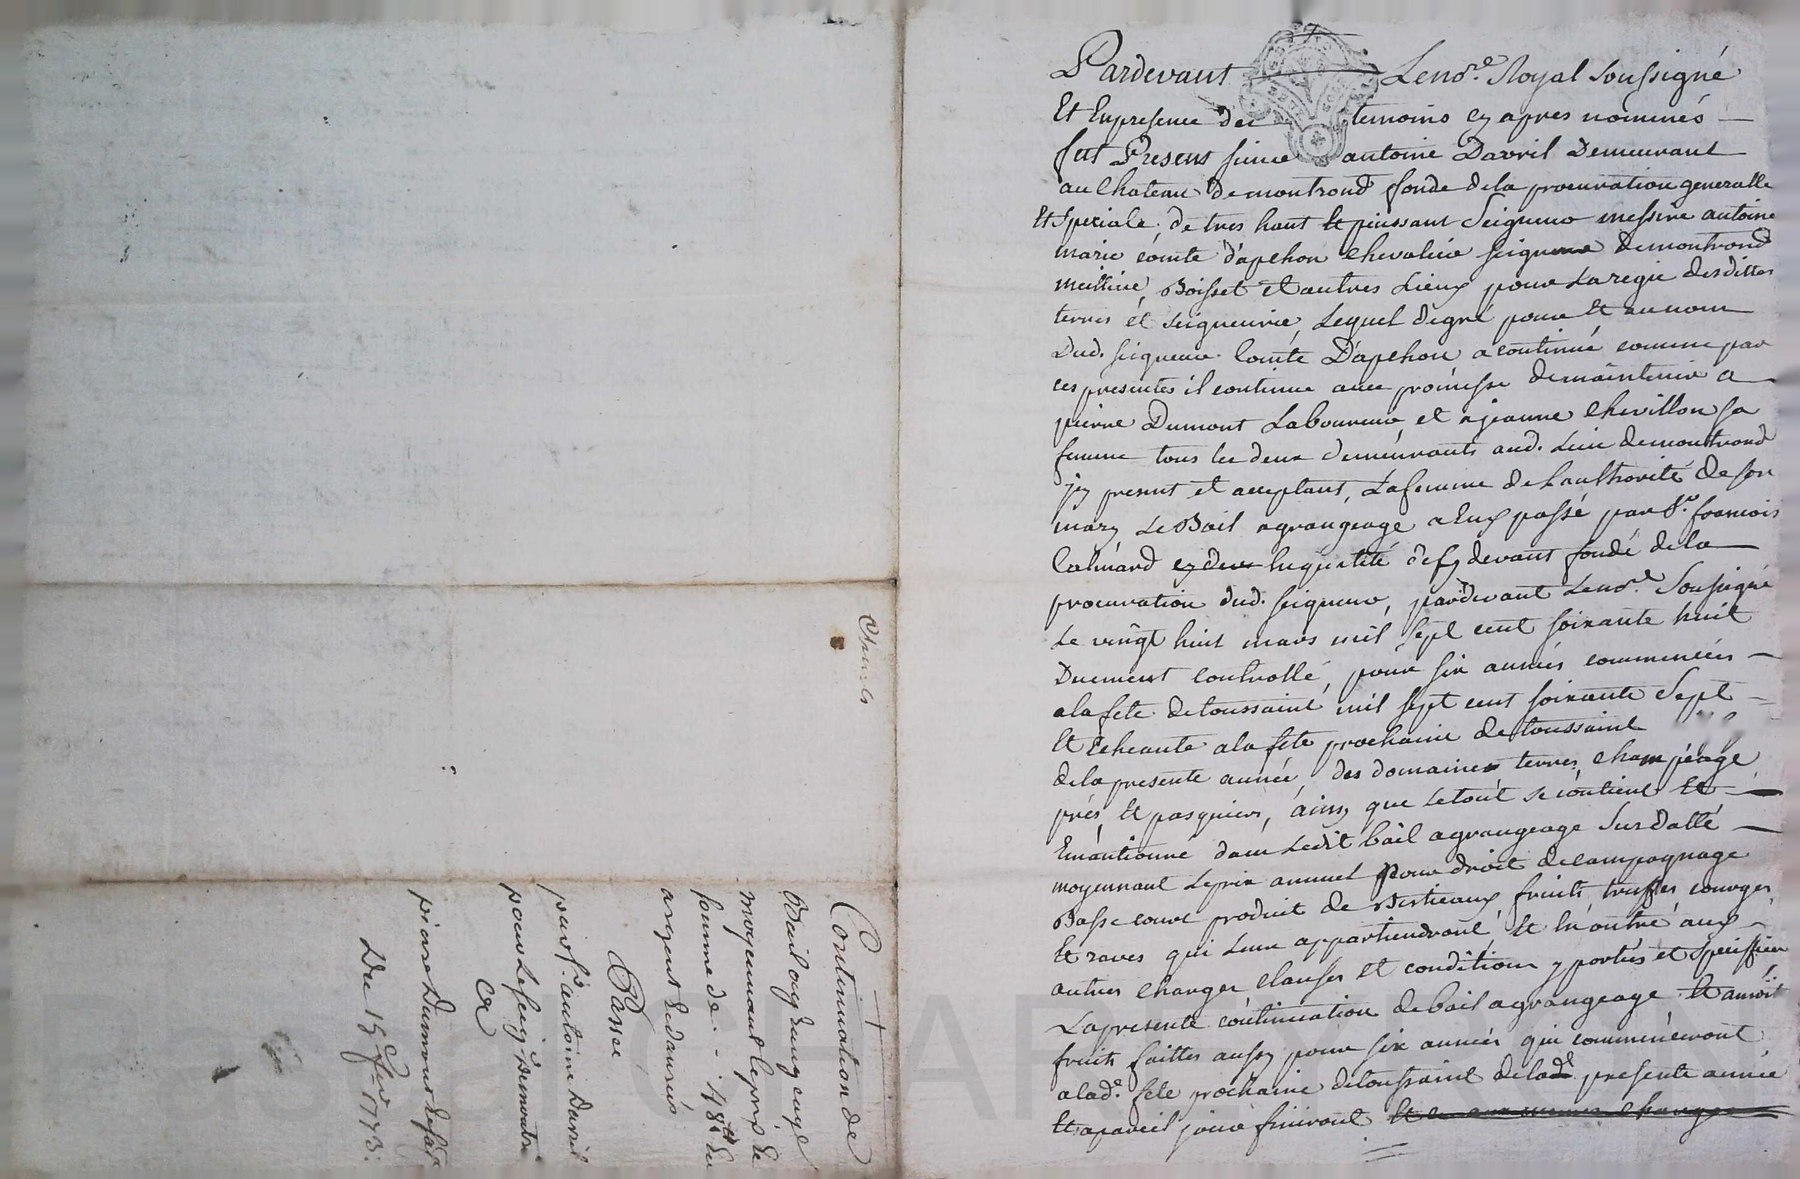 Pardevant Le nore. Royal soussigné
Et En presence des temoins cy apres nommés
fut Present sieur antoine Davril Demeurant
au Chateau de montrond fondé de la procuration generalle
Et speciale de tres haut et puissant Seigneur messire antoine
marie comte d'apchon chevalier seigneur de montrond
meillier, Boisset et autres Lieux pour La regie desdittes
terres et seigneurie, Lequel de gré pour et au nom
Dud. seigneur Comte D'apchon a continué comme par
ces presentes il continue avec promesse de maintenir a
pierre Dumont Laboureur et a jeanne chevillon sa
femme tous les deux demeurants aud. Lieu de montrond
jcy present et acceptant, La femme de L'authorité de son
mary Le Bail a grangeage a Eux passé par Sr. francois
Calmard en qualité de cy devant fondé de la
procuration dud. seigneur, pardevant Le nore. Soussigné
Le vingt huit mars mil sept cent soixante huit
Duement controllé, pour six années commencées
a la fete de toussaint mil sept cent soixante sept
Et Echeante a la fete prochaine de toussaint
de la presente année, des domaines terres, champéage
prés, et pasquiers, ainsy que le tout se contient et
Emantionné dans Ledit bail a grangeage susdatté
moyennant Le prix annuel pour droit de campagnage
Basse cour produit de Bestieaux fruits, truffes courges,
Et raves qui Leur appartiendront et En outre aux
autres charges clauses et conditions y portées et speciffiées
La presente continuation de bail a grangeage
fruits faittes aussy pour six années qui commenceront
a lad. fete prochaine de toussaint de lad. presente année
Et a pareil jour finiront
Continuation de
Bail a grangeage
moyennant le prix de
somme de 48tt en
argent et danrés
Passé
par sr. antoine Davril
pour Le seigr. de montrond
a
pierre Dumont et sa fe
Du 15 fer. 1773.
CHAR